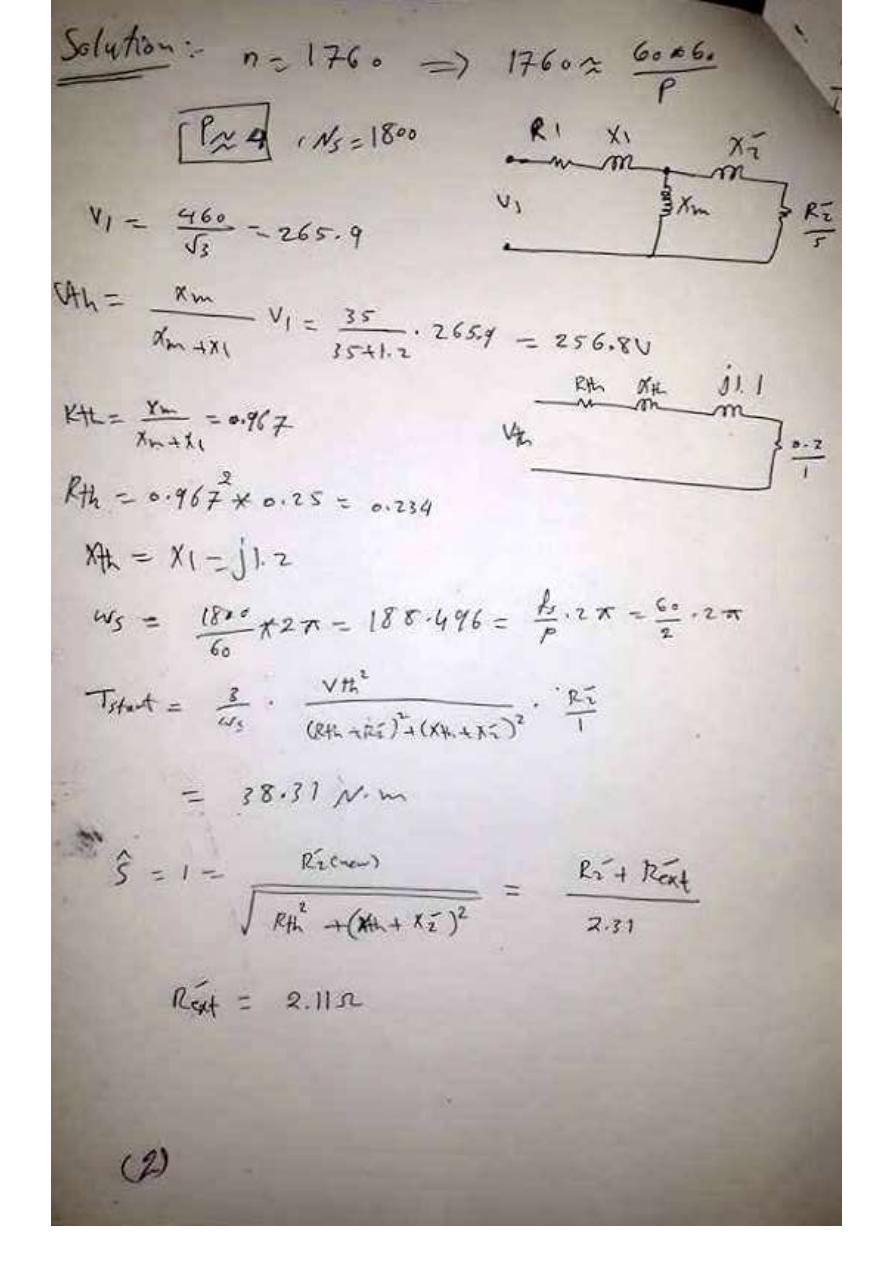 Solution :-
n = 1760 ⇒ 1760 ≈ 60*60 / P
P ≈ 4 , Ns = 1800
R1 X1 X2̄
V1 Xm R2̄ / s
V1 = 460 / √3 = 265.9
Vth = Xm / (Xm + X1) V1 = 35 / (35+1.2) · 265.9 = 256.8V
Rth Xth j1.1
Vth 0.2 / 1
Kth = Xm / (Xm + X1) = 0.967
Rth = 0.967² * 0.25 = 0.234
Xth = X1 = j1.2
ws = 1800 / 60 * 2π = 188.496 = fs / P · 2π = 60 / 2 · 2π
Tstart = 3 / ws · Vth² / ((Rth + R2̄)² + (Xth + X2̄)²) · R2̄ / 1
= 38.31 N.m
ŝ = 1 = R2̄(new) / √(Rth² + (Xth + X2̄)²) = (R2̄ + R̄ext) / 2.31
R̄ext = 2.11 Ω
(2)